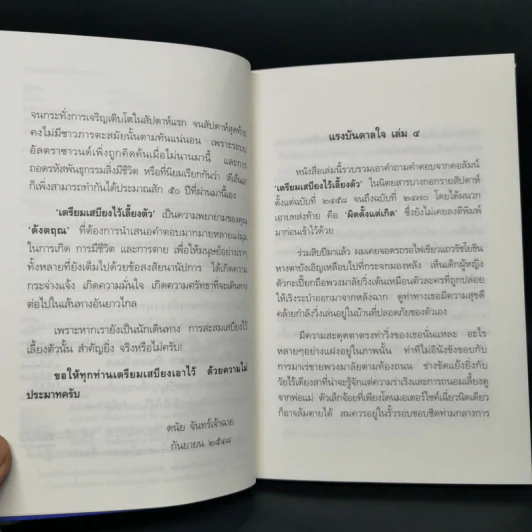 จนกระทั่งการเจริญเติบโตในสัปดาห์แรก จนสัปดาห์สุดท้าย
คงไม่มีชาวภารตะสมัยนั้นตามทันแน่นอน เพราะระบบ
อัลตราซาวนด์เพิ่งถูกคิดค้นเมื่อไม่นานมานี้ และการ
ถอดรหัสพันธุกรรมสิ่งมีชีวิต หรือที่นิยมเรียกกันว่า 'ดีเอ็นเอ'
ก็เพิ่งสามารถทำกันได้ประมาณสัก ๕๐ ปีที่ผ่านมานี้เอง
'เตรียมเสบียงไว้เลี้ยงตัว' เป็นความพยายามของคุณ
'ดังตฤณ' ที่ต้องการนำเสนอคำตอบมากมายหลายแง่มุม
ในการเกิด การมีชีวิต และการตาย เพื่อให้มนุษย์อย่างเราๆ
ทั้งหลายที่ยังเต็มไปด้วยข้อสงสัยนานัปการ ได้เกิดความ
กระจ่างแจ้ง เกิดความมั่นใจ เกิดความศรัทธาที่จะเดินทาง
ต่อไปในเส้นทางอันยาวไกล
เพราะหากเรายังเป็นนักเดินทาง การสะสมเสบียงไว้
เลี้ยงตัวนั้น สำคัญยิ่ง จริงหรือไม่ครับ!
ขอให้ทุกท่านเตรียมเสบียงเอาไว้ ด้วยความไม่
ประมาทครับ
ดนัย จันทร์เจ้าฉาย
กันยายน ๒๕๔๘
แรงบันดาลใจ เล่ม ๔
หนังสือเล่มนี้รวบรวมเอาคำถามคำตอบจากคอลัมน์
'เตรียมเสบียงไว้เลี้ยงตัว' ในนิตยสารบางกอกรายสัปดาห์
ตั้งแต่ฉบับที่ ๒๔๕๘ จนถึงฉบับที่ ๒๔๗๐ โดยได้ผนวก
เอาบทส่งท้าย คือ 'ผิดตั้งแต่เกิด' ซึ่งยังไม่เคยลงตีพิมพ์
มาก่อนเข้าไว้ด้วย
ร่วมสิบปีมาแล้ว ผมเคยจอดรถรอไฟเขียวแถวรัชโยธิน
หางตาบังเอิญเหลือบไปที่กระจกมองหลัง เห็นเด็กผู้หญิง
ตัวกะเปี๊ยกถือพวงมาลัยวิ่งเต้นเหมือนตัวละครที่ถูกปล่อย
ให้เริงระบำออกมาจากหลังฉาก ดูท่าทางเธอมีความสุขดี
คล้ายกำลังวิ่งเล่นอยู่ในบ้านที่ปลอดภัยของตัวเอง
มีความสะดุดตาตรงท่าวิ่งของเธอนั่นแหละ อะไร
หลายๆอย่างแฝงอยู่ในภาพนั้น ท่าทีไม่อินังขังขอบกับ
การมาเร่ขายพวงมาลัยตามท้องถนน ช่างขัดแย้งยิ่งกับ
วัยไร้เดียงสาที่น่าจะรู้จักแต่ความร่าเริงและการถนอมเลี้ยงดู
จากพ่อแม่ ตัวเล็กจ้อยที่เพียงโดนมอเตอร์ไซค์เฉี่ยวนิดเดียว
ก็อาจล้มตายได้ สมควรอยู่ในรั้วรอบขอบชิดท่ามกลางการ